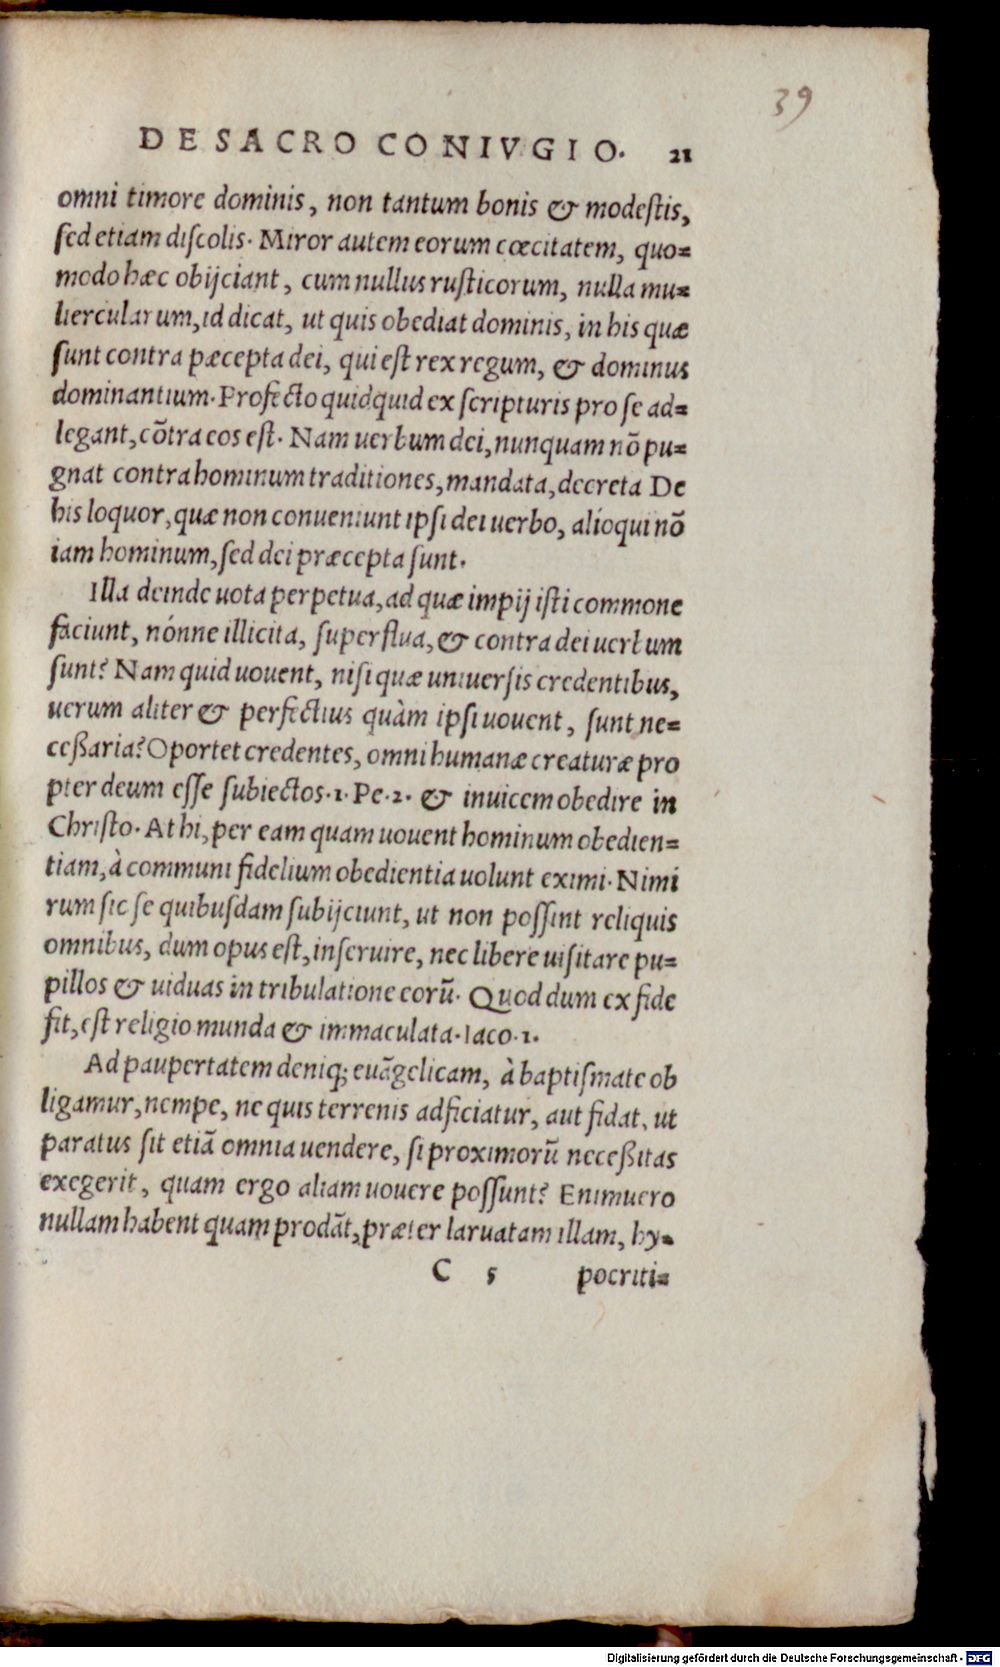 39
DE SACRO CONIVGIO. 21
omni timore dominis, non tantum bonis & modestis,
sed etiam discolis. Miror autem eorum cœcitatem, quo=
modo hæc obijciant, cum nullus rusticorum, nulla mu=
liercularum, id dicat, ut quis obediat dominis, in his quæ
sunt contra pæcepta dei, qui est rex regum, & dominus
dominantium. Profecto quidquid ex scripturis pro se ad=
legant, cõtra eos est. Nam uerbum dei, nunquam nõ pu=
gnat contra hominum traditiones, mandata, decreta De
his loquor, quæ non conueniunt ipsi dei uerbo, alioqui nõ
iam hominum, sed dei præcepta sunt.
Illa deinde uota perpetua, ad quæ impij isti commone
faciunt, nónne illicita, superflua, & contra dei uerbum
sunt? Nam quid uouent, nisi quæ uniuersis credentibus,
uerum aliter & perfectius quàm ipsi uouent, sunt ne=
ceßaria? Oportet credentes, omni humanæ creaturæ pro
pter deum esse subiectos. 1. Pe. 2. & inuicem obedire in
Christo. At hi, per eam quam uouent hominum obedien=
tiam, à communi fidelium obedientia uolunt eximi. Nimi
rum sic se quibusdam subijciunt, ut non possint reliquis
omnibus, dum opus est, inseruire, nec libere uisitare pu=
pillos & uiduas in tribulatione eorũ. Quod dum ex fide
fit, est religio munda & immaculata. Iaco. 1.
Ad paupertatem deniq; euãgelicam, à baptismate ob
ligamur, nempe, ne quis terrenis adficiatur, aut fidat, ut
paratus sit etiã omnia uendere, si proximorũ neceßitas
exegerit, quam ergo aliam uouere possunt? Enimuero
nullam habent quam prodãt, præter laruatam illam, hy=
C 5 pocriti=
Digitalisierung gefördert durch die Deutsche Forschungsgemeinschaft - DFG